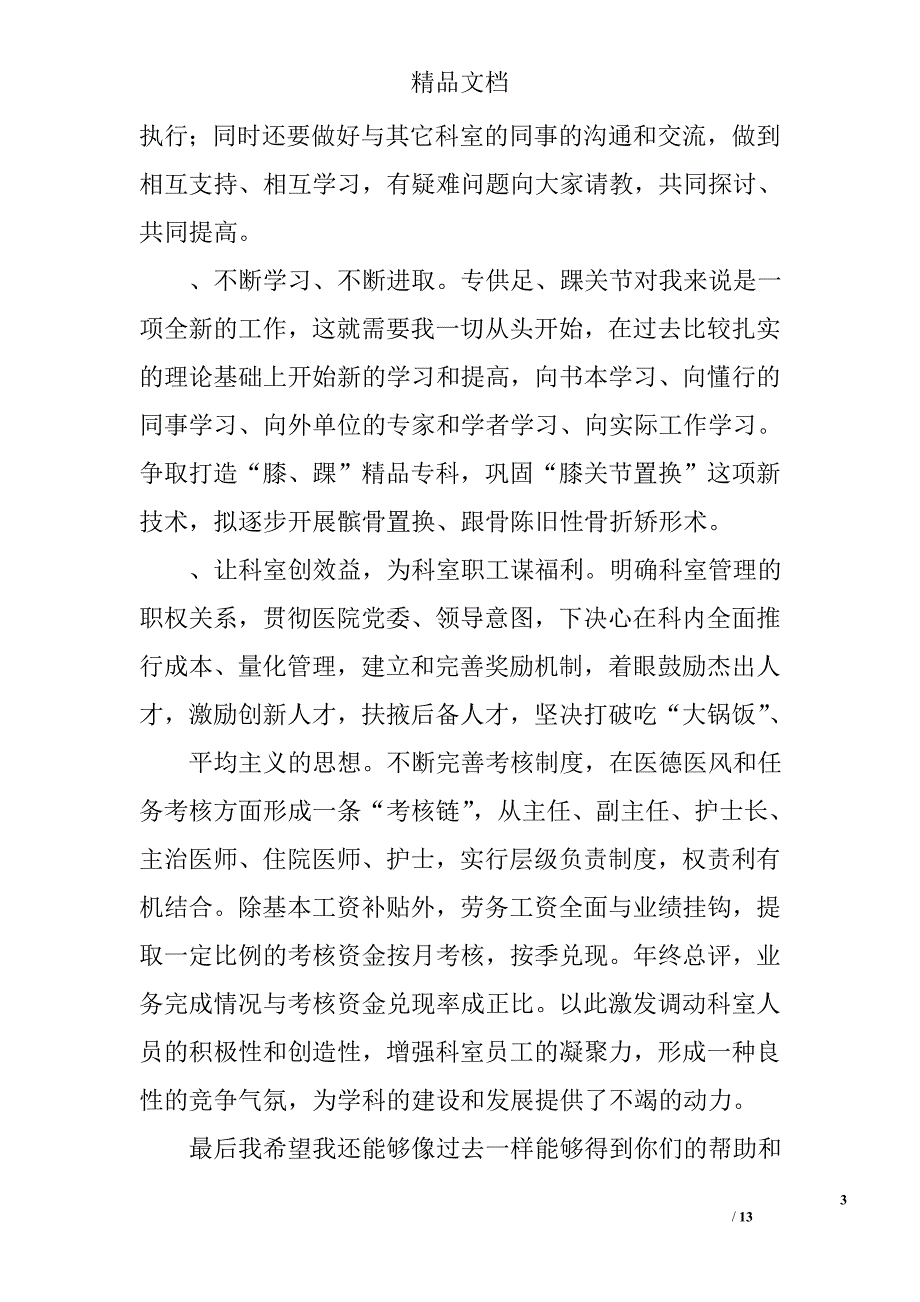 精品文档
执行；同时还要做好与其它科室的同事的沟通和交流，做到
相互支持、相互学习，有疑难问题向大家请教，共同探讨、
共同提高。
、不断学习、不断进取。专供足、踝关节对我来说是一
项全新的工作，这就需要我一切从头开始，在过去比较扎实
的理论基础上开始新的学习和提高，向书本学习、向懂行的
同事学习、向外单位的专家和学者学习、向实际工作学习。
争取打造“膝、踝”精品专科，巩固“膝关节置换”这项新
技术，拟逐步开展髌骨置换、跟骨陈旧性骨折矫形术。
、让科室创效益，为科室职工谋福利。明确科室管理的
职权关系，贯彻医院党委、领导意图，下决心在科内全面推
行成本、量化管理，建立和完善奖励机制，着眼鼓励杰出人
才，激励创新人才，扶掖后备人才，坚决打破吃“大锅饭”、
平均主义的思想。不断完善考核制度，在医德医风和任
务考核方面形成一条“考核链”，从主任、副主任、护士长、
主治医师、住院医师、护士，实行层级负责制度，权责利有
机结合。除基本工资补贴外，劳务工资全面与业绩挂钩，提
取一定比例的考核资金按月考核，按季兑现。年终总评，业
务完成情况与考核资金兑现率成正比。以此激发调动科室人
员的积极性和创造性，增强科室员工的凝聚力，形成一种良
性的竞争气氛，为学科的建设和发展提供了不竭的动力。
最后我希望我还能够像过去一样能够得到你们的帮助和
3
/ 13